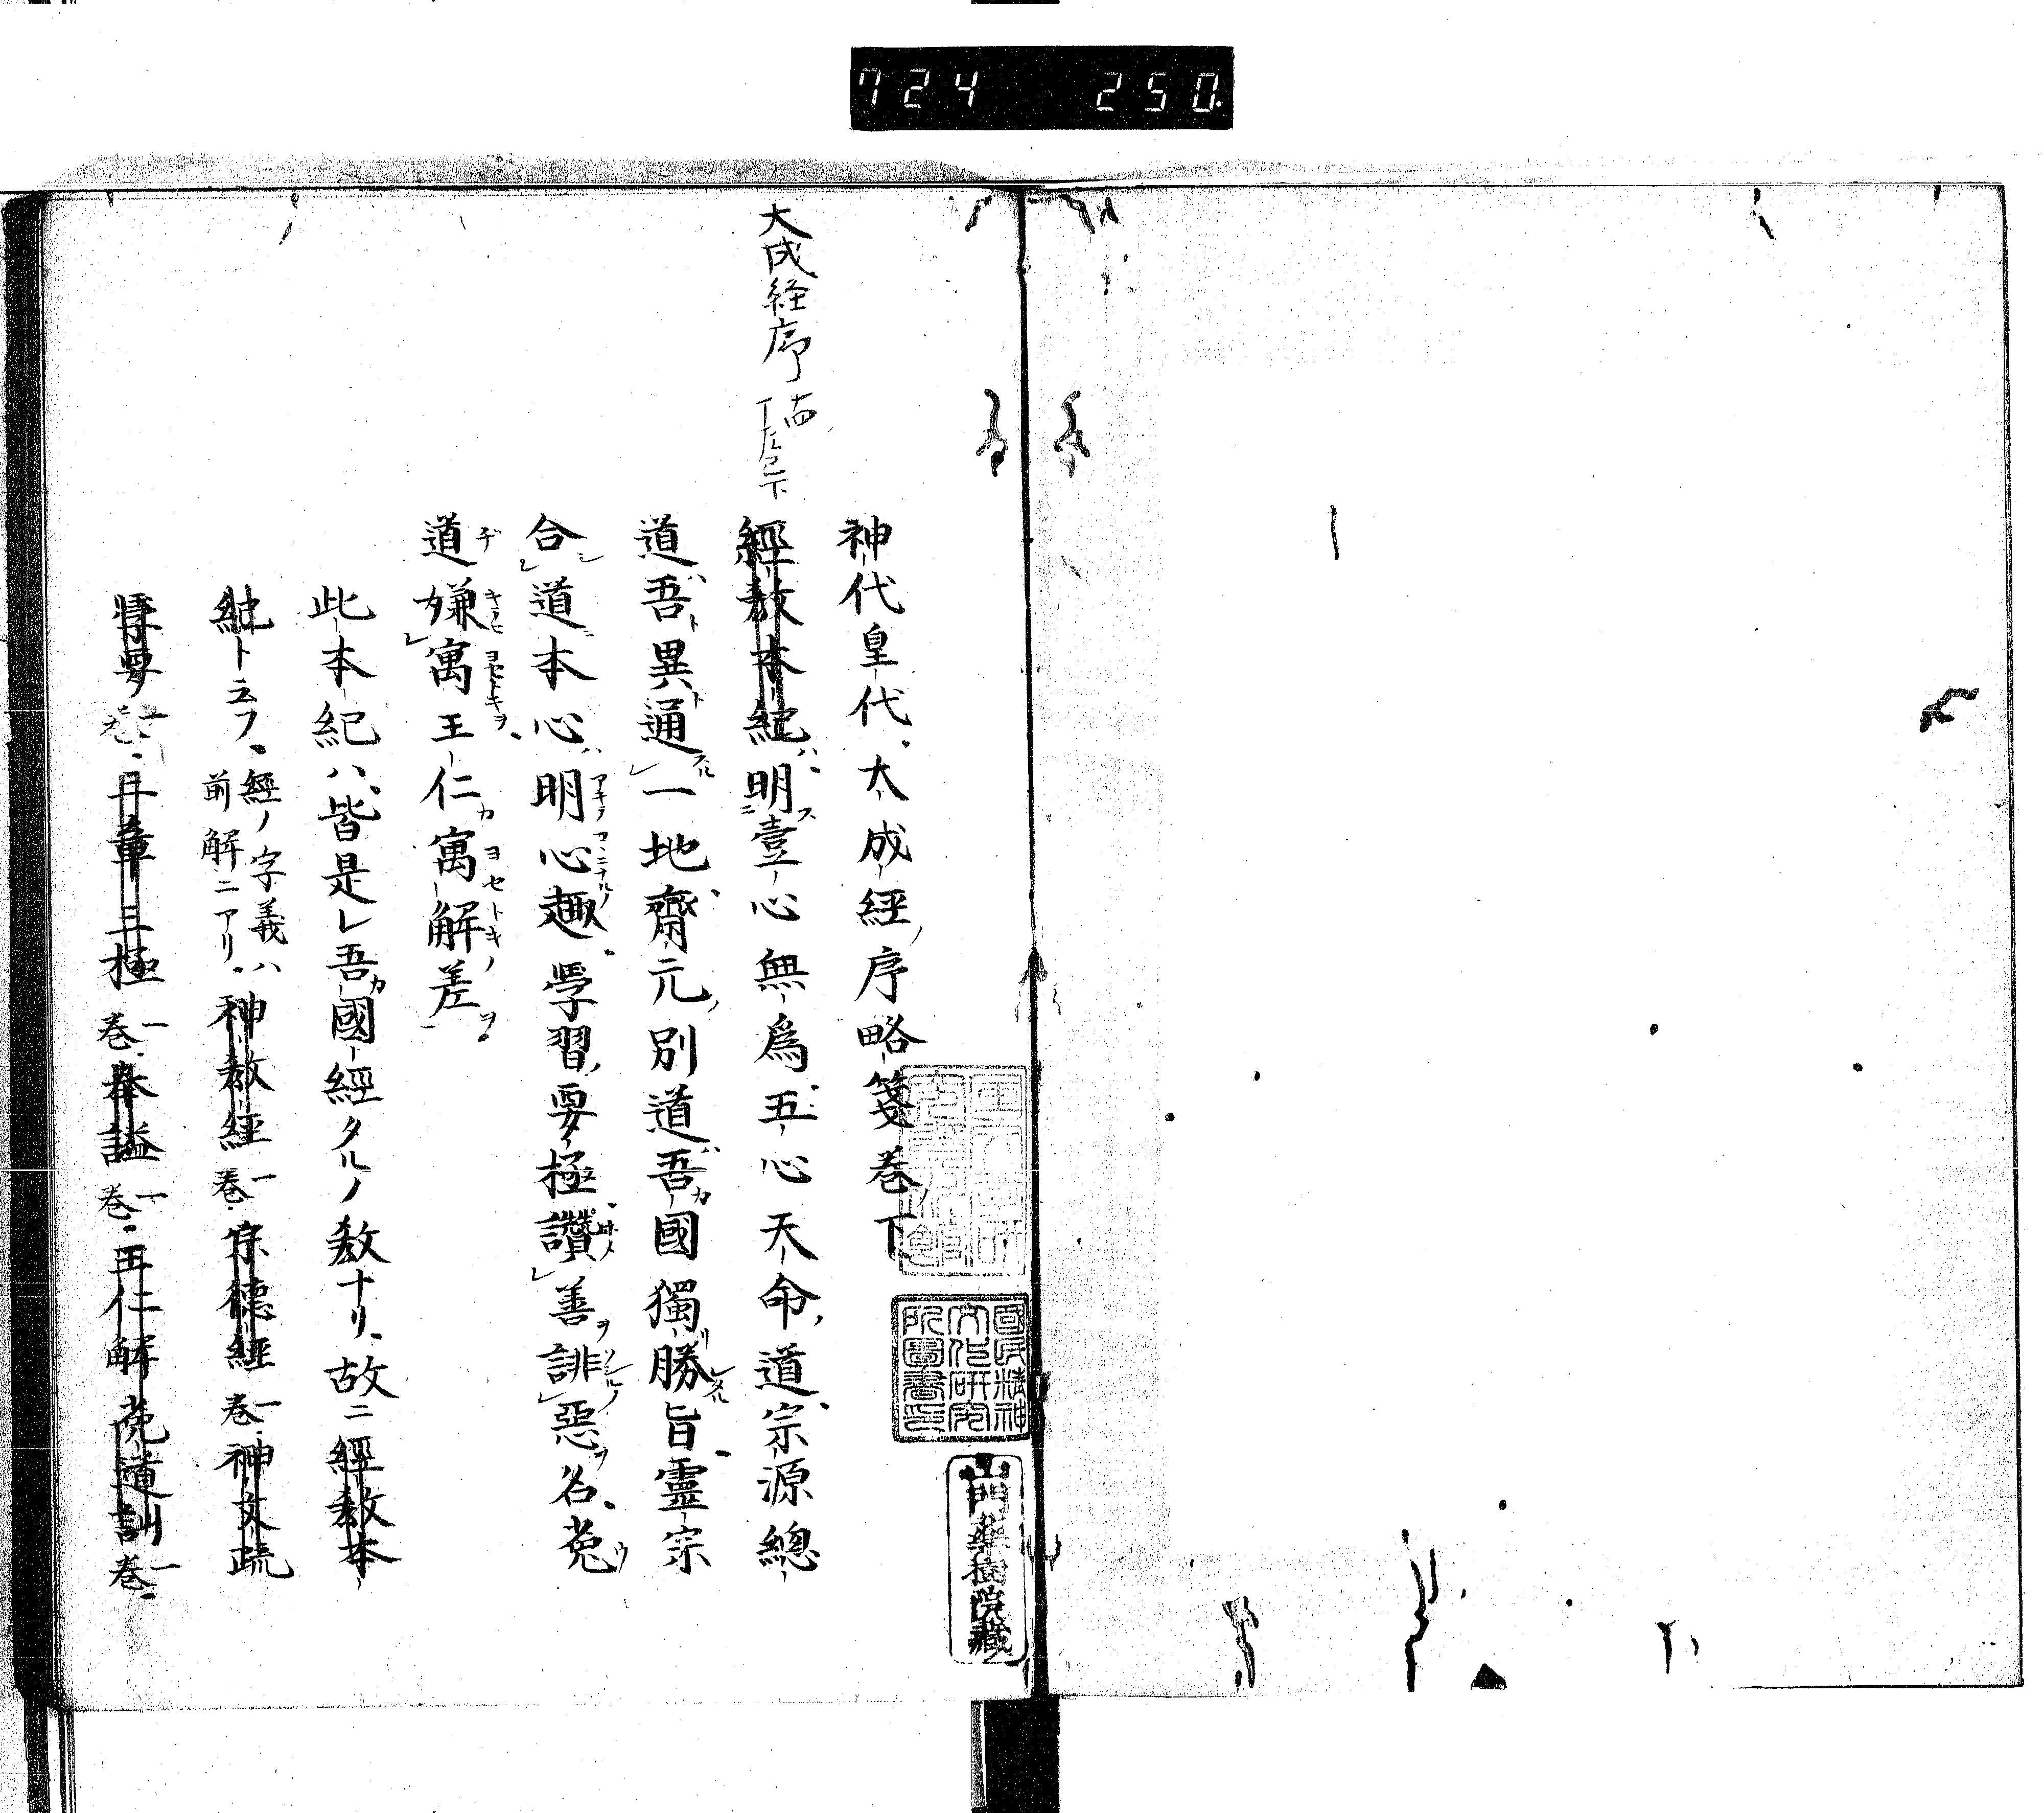 724 250
神代皇代大成經序略箋卷下
大成経序
經教本紀ハ明壹心無為五心天命道宗源總
道吾異通一地齋元別道吾國獨勝旨靈宗
合道本心明心趣學習要極讚善誹惡名菟
道嫌寓王仁寓解差
此本紀ハ皆是レ吾カ國經タルノ教ナリ故ニ經教本
紀ト云フ經ノ字義ハ前解ニアリ神教經一卷宗德經一卷神文疏
一卷三極一卷奉謚一卷王仁解菟道訓一卷
國民精神文化研究所圖書印
山門藥樹院藏